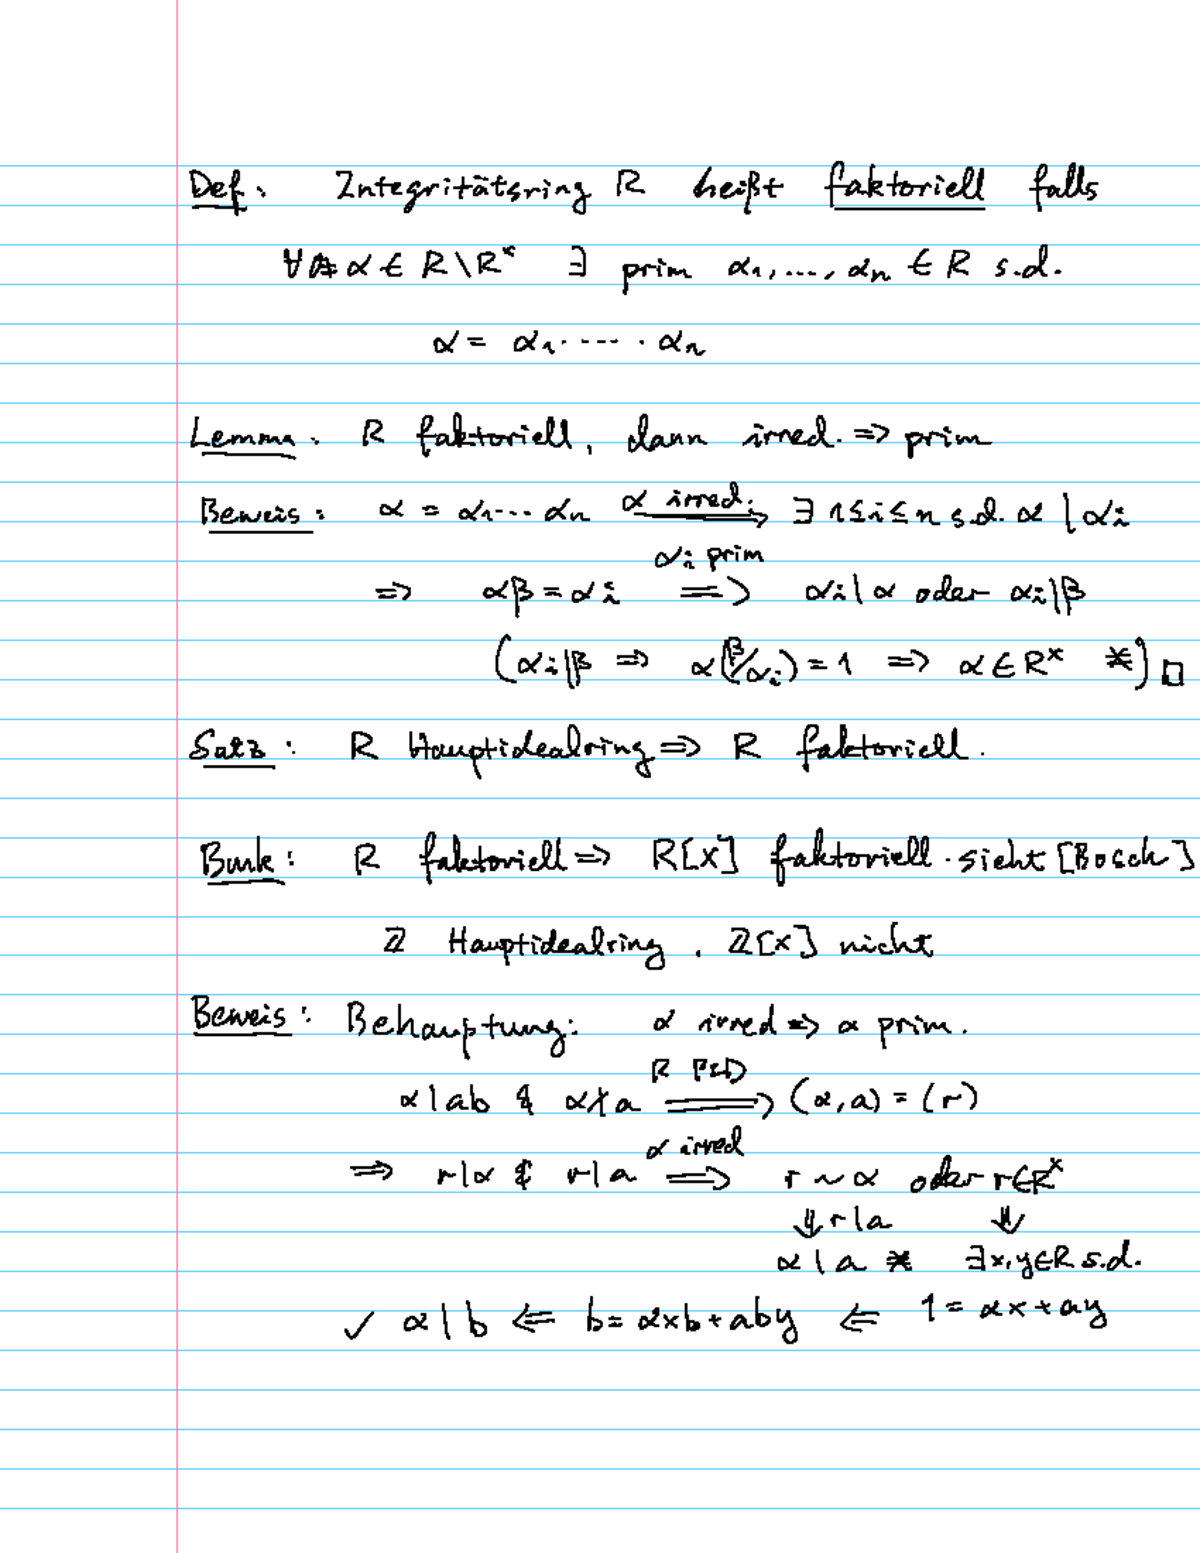 Def: Integritätsring R heißt faktoriell falls
∀ 0≠ α ∈ R\R^× ∃ prim α₁, ..., αₙ ∈ R s.d.
α = α₁ · ---- · αₙ
Lemma: R faktoriell, dann irred. ⇒ prim
Beweis: α = α₁ --- αₙ =(α irred.)⇒ ∃ 1≤i≤n s.d. α | αᵢ
⇒ αβ = αᵢ =(αᵢ prim)⇒ αᵢ | α oder αᵢ | β
(αᵢ | β ⇒ α(β/αᵢ) = 1 ⇒ α ∈ R^× ※) □
Satz: R Hauptidealring ⇒ R faktoriell.
Bmk: R faktoriell ⇒ R[X] faktoriell. sieht [Bosch]
ℤ Hauptidealring, ℤ[X] nicht
Beweis: Behauptung: α irred ⇒ α prim.
α | ab & α ∤ a =(R PID)⇒ (α, a) = (r)
⇒ r | α & r | a =(α irred)⇒ r ~ α oder r ∈ R^×
⇓ r | a ⇓
α | a ※ ∃ x, y ∈ R s.d.
✓ α | b ⇐ b = αxb + aby ⇐ 1 = αx + ay